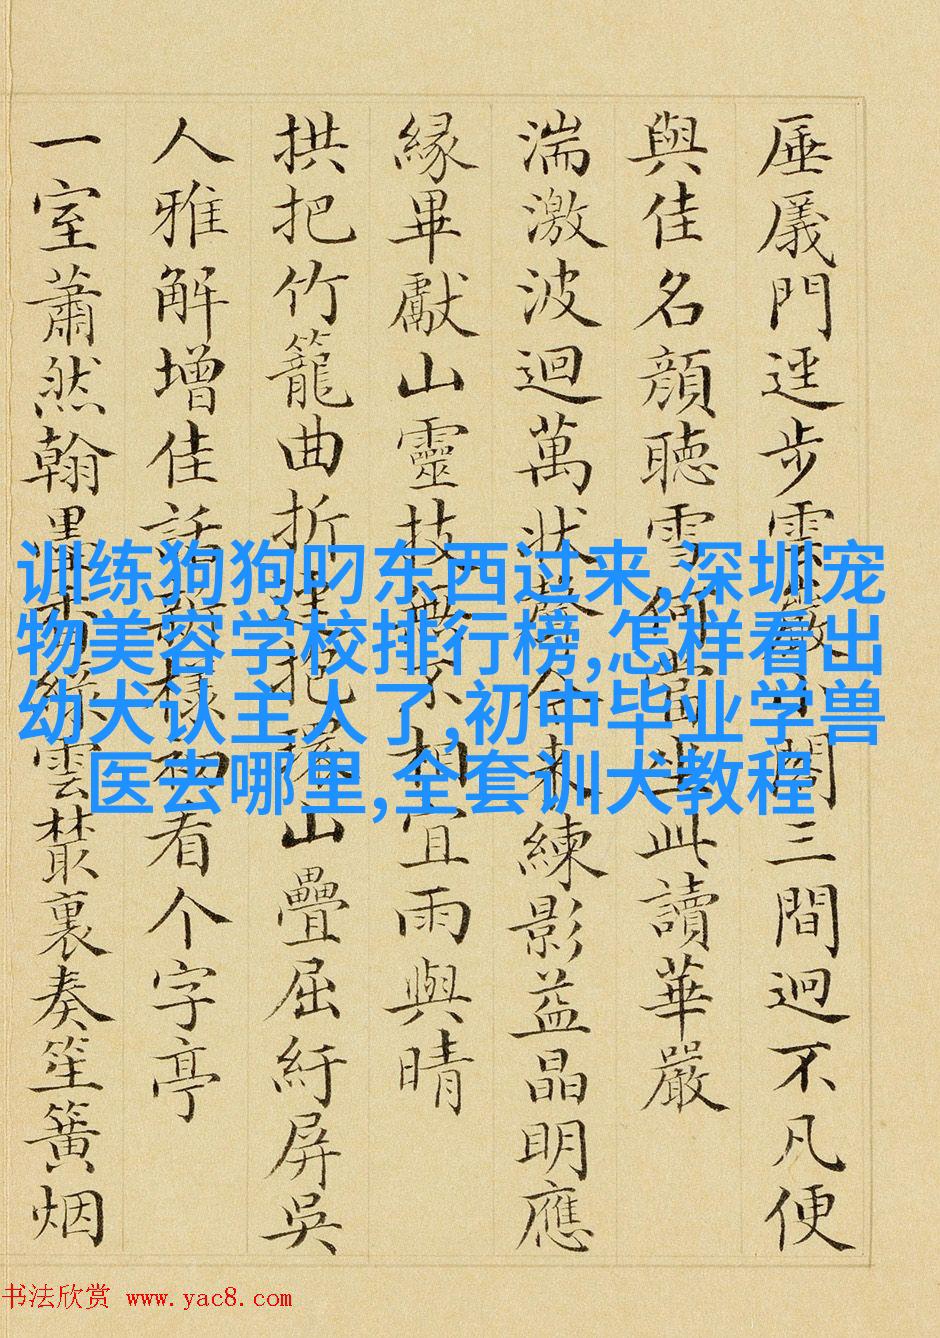 厜㕒門逕步雲閣三間迥不凡便
與佳名顏聽雪何當坐此讀華嚴
湍激波迴萬狀聲合來練影益晶明應
緣畢獻山靈技無不相宜雨與晴
拱把竹籠曲折把山疊屈紆屏吳
人雅解增佳話樣看个字亭
一室蕭然翰墨香絲雲叢裏奏笙簧烟
训练狗狗叼东西过来,深圳宠
物美容学校排行榜,怎样看出
幼犬认主人了,初中毕业学兽
医去哪里,全套训犬教程
书法欣赏 www.yac8.com